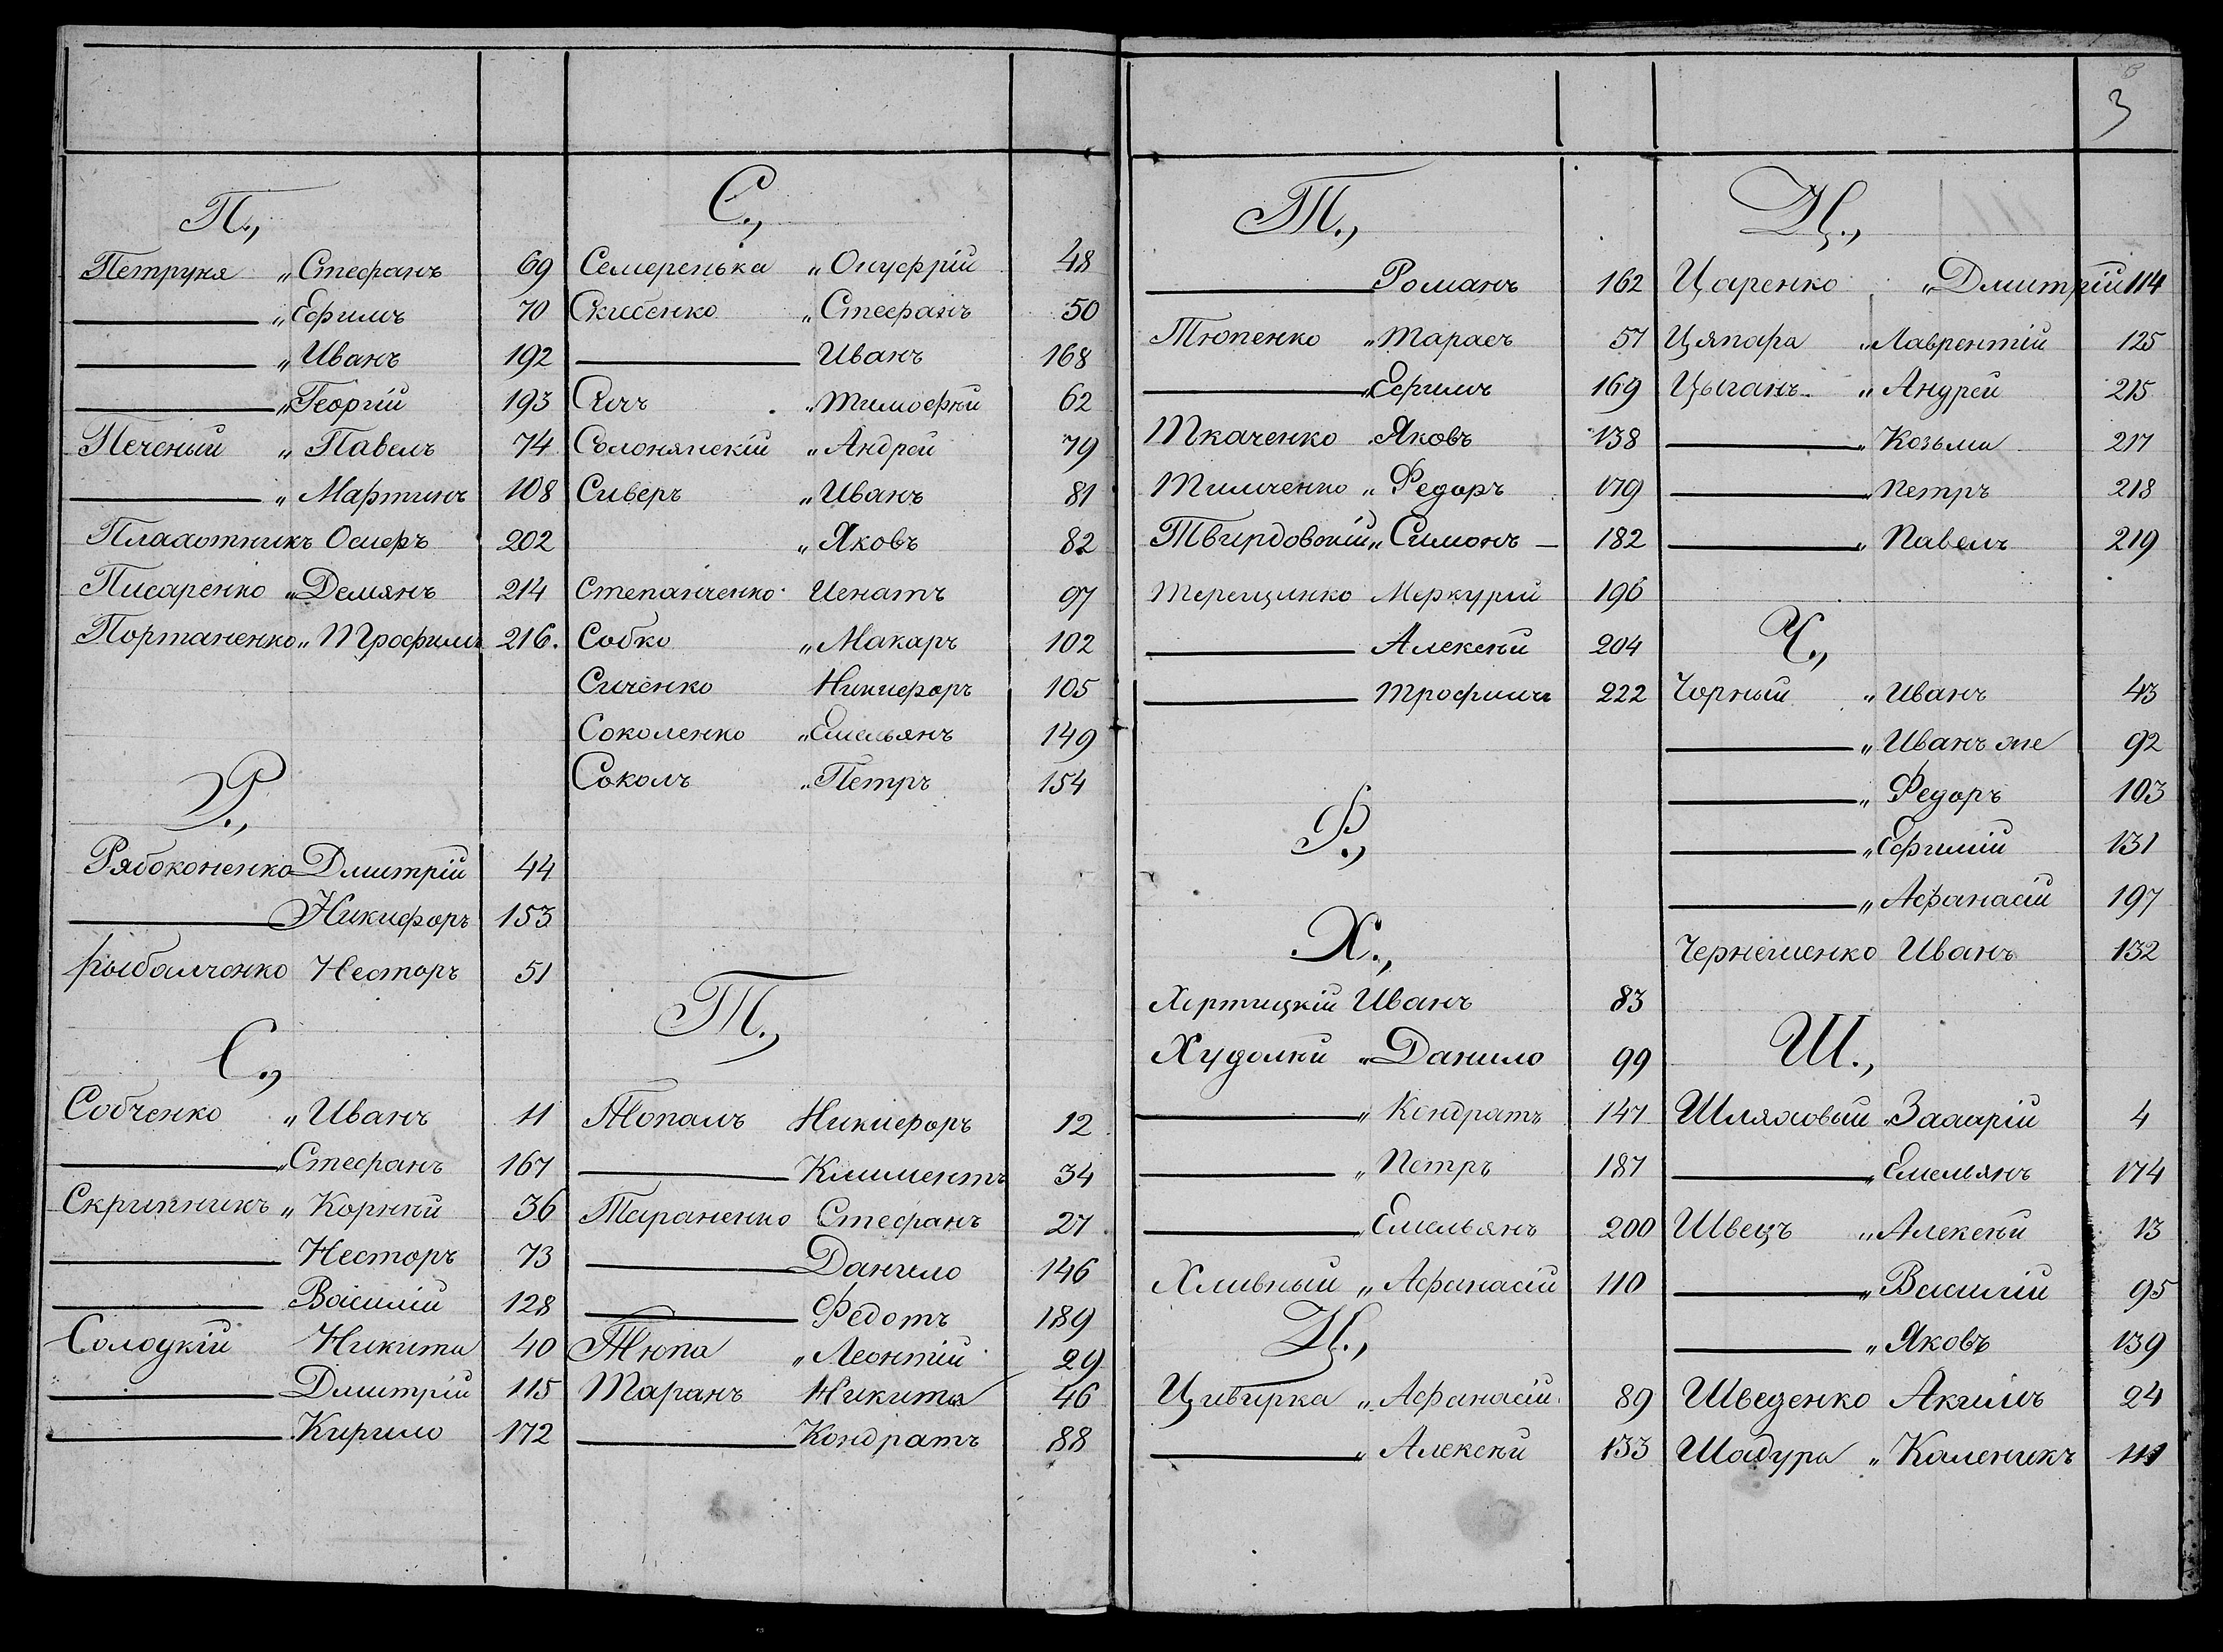 3
П.,
Петруня „ Стефанъ 69
——— „ Ефимъ 70
——— „ Иванъ 192
——— „ Георгій 193
Печеный „ Павелъ 74
——— „ Мартинъ 108
Плахотникъ Осиѳъ 202
Писаренко „ Демянъ 214
Портаненко „ Трофимъ 216.
Р.,
Рябоконенко Дмитрій 44
——— Никифоръ 153
Рыбалченко Несторъ 51
С.,
Собченко „ Иванъ 11
——— „ Стефанъ 167
Скрипникъ „ Корній 36
——— Несторъ 73
——— Василій 128
Солоцкій Никита 40
——— Дмитрій 115
——— Кирило 172
С.,
Семеренька „ Онуфрій 48
Скибенко „ Стефанъ 50
——— Иванъ 168
„ Тимофѣй 62
Солонянскій „ Андрей 79
Сиверъ „ Иванъ 81
„ Яковъ 82
Степанченко Игнатъ 97
Собко „ Макаръ 102
Сиченко Никифоръ 105
Соколенко „ Емельянъ 149
Соколъ „ Петръ 154
Т.,
Топалъ Никифоръ 12
——— Климентъ 34
Тараненко Стефанъ 27
——— Данило 146
——— Федотъ 189
Тюпа „ Леонтій 29
Таранъ Никита 46
——— Кондратъ 88
Т.,
——— Романъ 162
Тюпенко „ Тарасъ 57
——— „ Ефимъ 169
Ткаченко Яковъ 138
Тимченко „ Федоръ 179
Твирдовскій „ Симонъ — 182
Терещенко Меркурій 196
——— Алексѣй 204
——— Трофимъ 222
Ф.,
Х.,
Хортицкій Иванъ 83
Худолѣй „ Данило 99
——— „ Кондратъ 147
——— „ Петръ 187
——— „ Емельянъ 200
Хливный „ Афанасій 110
Ц.,
Цивирка „ Афанасій 89
——— „ Алексѣй 133
Ц.,
Царенко „ Дмитрій 114
Цяпара „ Лаврентій 125
Цыганъ „ Андрей 215
——— „ Козьма 217
——— „ Петръ 218
——— „ Павелъ 219
Ч.,
Чорный „ Иванъ 43
——— „ Иванъ же 92
——— „ Федоръ 103
——— „ Ефимій 131
——— „ Афанасій 197
Чернешенко Иванъ 132
Ш.,
Шляховый „ Захарій 4
——— „ Емельянъ 174
Швецъ „ Алексѣй 13
——— „ Василій 95
——— „ Яковъ 139
Шведенко Акимъ 24
Шадура „ Каленикъ 111